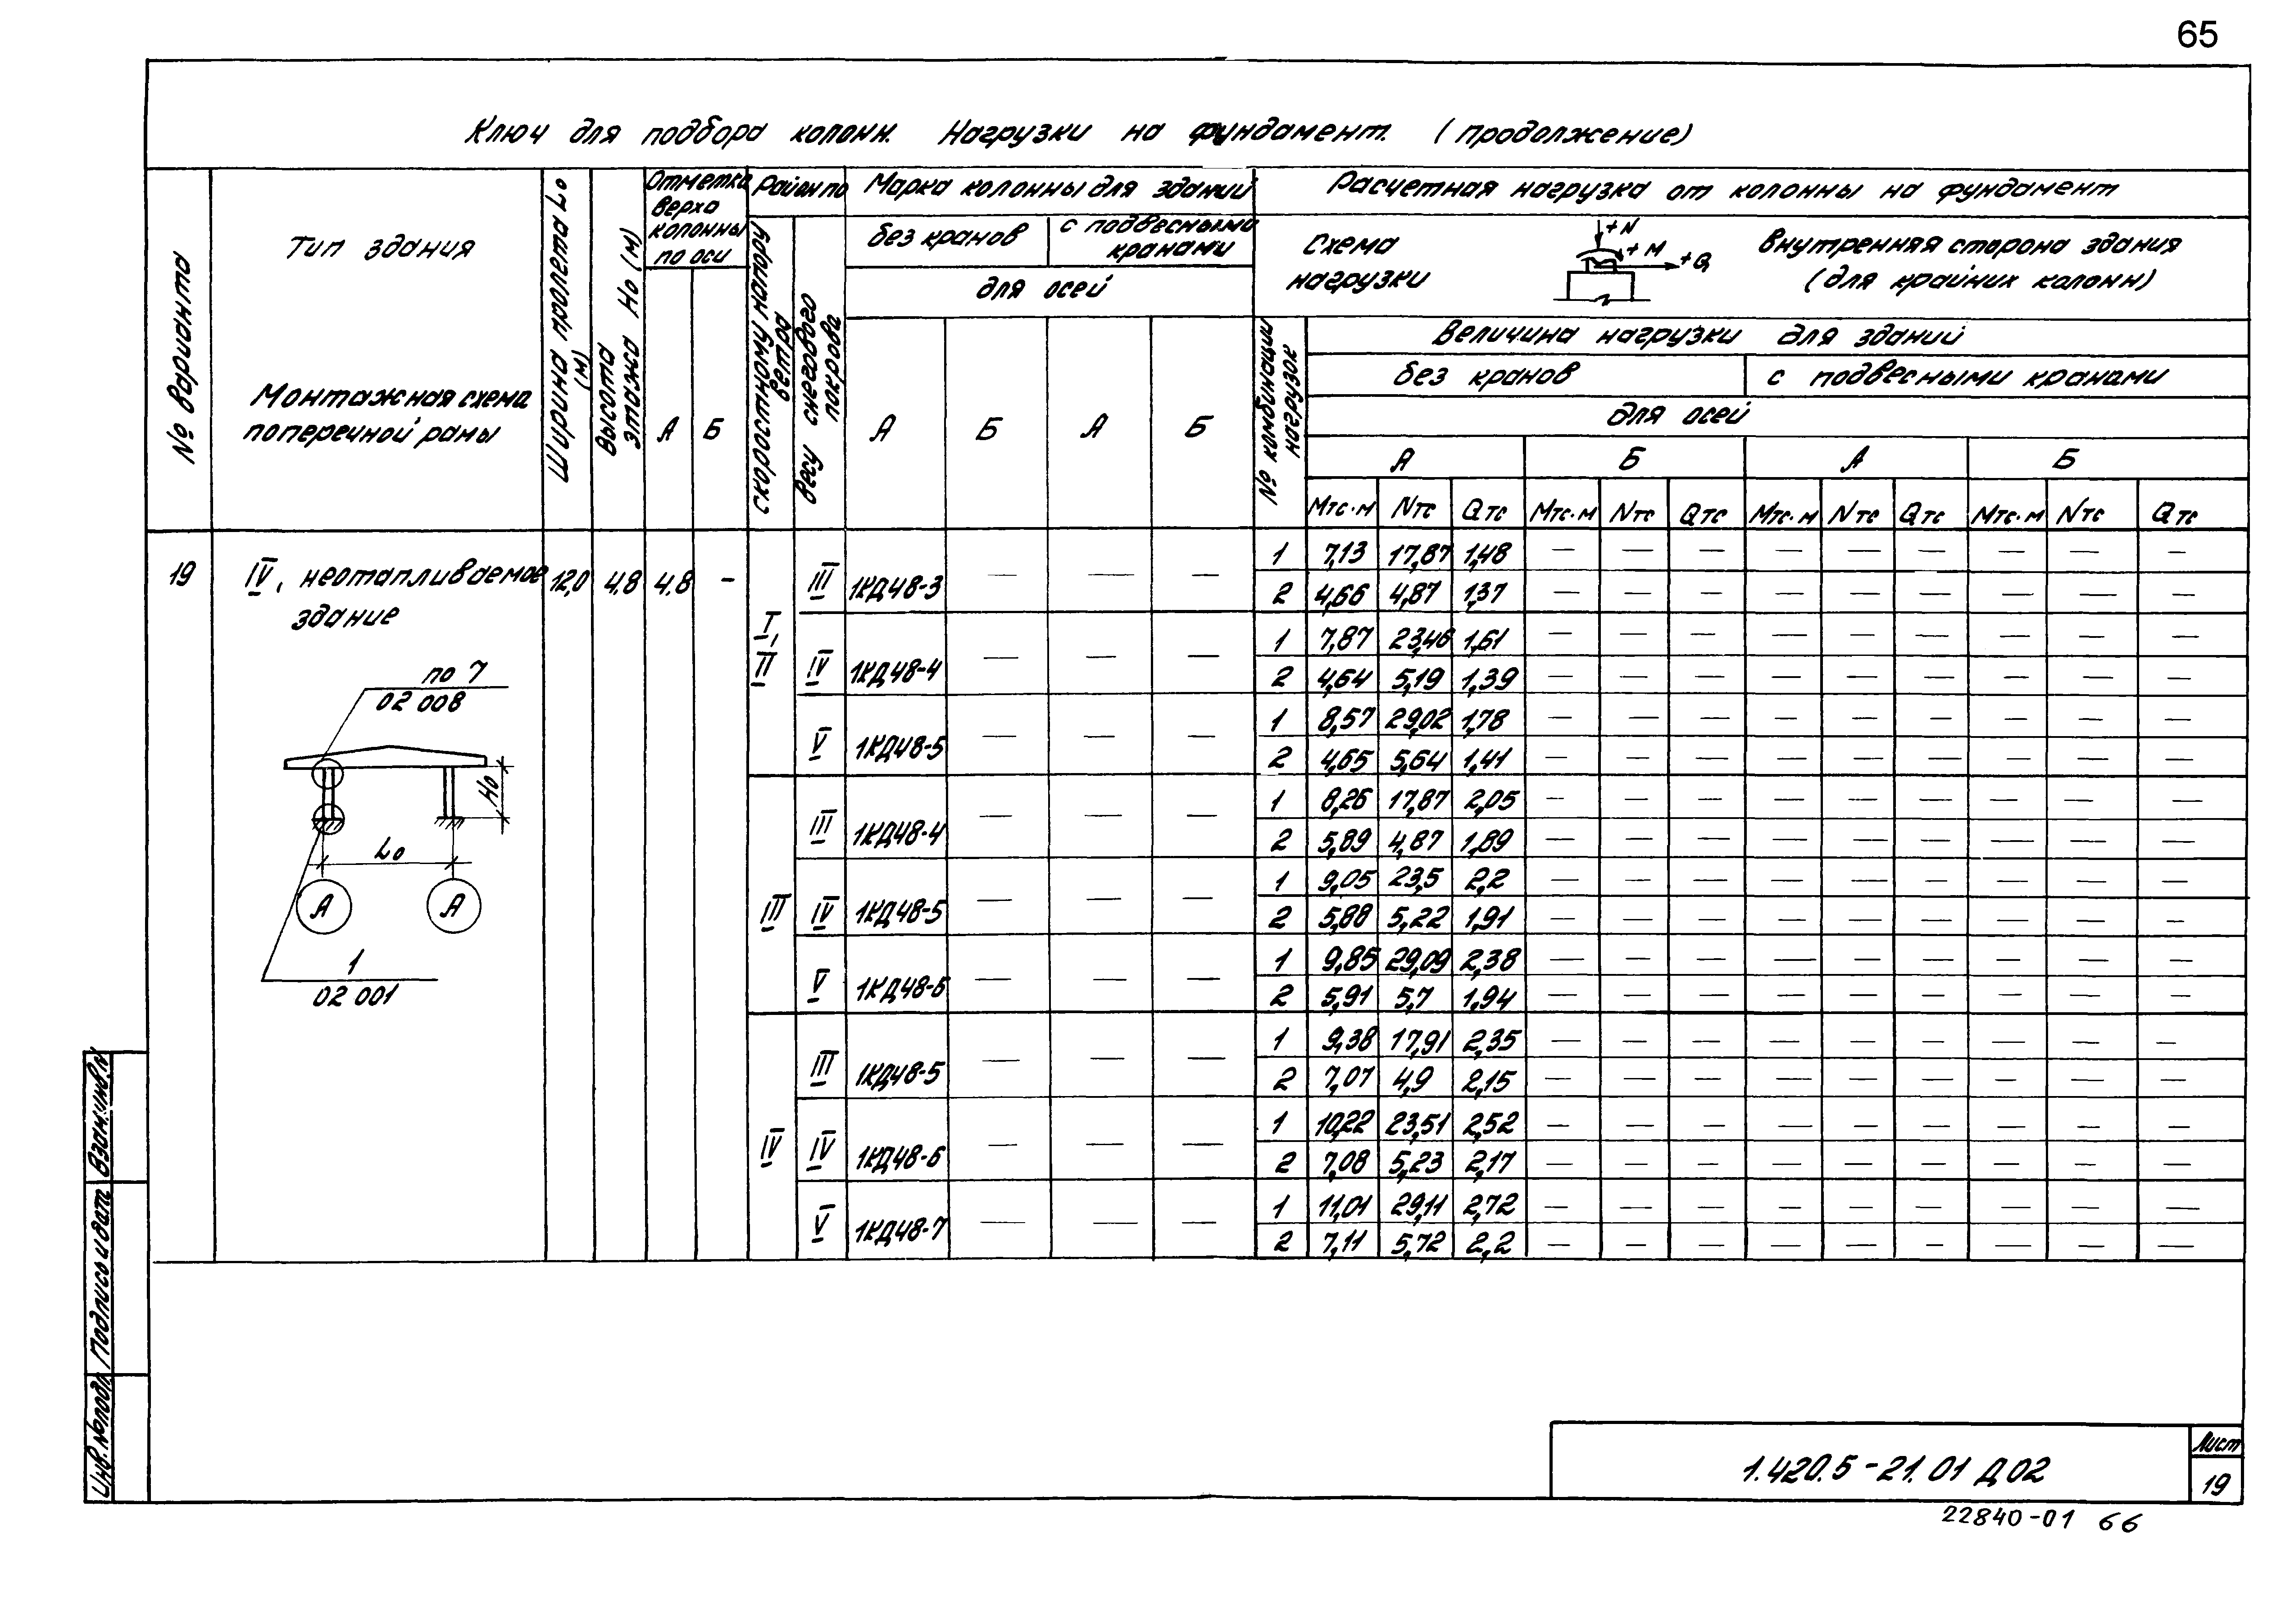 65
Ключ для подбора колонн. Нагрузки на фундамент. (продолжение)
№ варианта
Тип здания
Монтажная схема
поперечной рамы
Ширина пролета Lо
(м)
Высота
этажа Но (м)
Отметка
верха
колонны
по оси
А Б
Район по
скоростному напору
ветра
весу снегового
покрова
Марка колонны для зданий
без кранов
с подвесными
кранами
для осей
А Б А Б
Расчетная нагрузка от колонны на фундамент
Схема
нагрузки
+N
+M
+Q
внутренняя сторона здания
(для крайних колонн)
№ комбинации
нагрузок
Величина нагрузки для зданий
без кранов с подвесными кранами
для осей
А Б А Б
Мтс·м Nтс Qтс Мтс·м Nтс Qтс Мтс·м Nтс Qтс Мтс·м Nтс Qтс
19 IV, неотапливаемое 12,0 4,8 4,8 –
здание
по 7
02 008
Но
Lо
А А
1
02 001
I, II
III 1КД48-3 — — —
1 7,13 17,87 1,48 — — — — — — — — —
2 4,66 4,87 1,37 — — — — — — — — —
IV 1КД48-4 — — —
1 7,87 23,46 1,61 — — — — — — — — —
2 4,64 5,19 1,39 — — — — — — — — —
V 1КД48-5 — — —
1 8,57 29,02 1,78 — — — — — — — — —
2 4,65 5,64 1,41 — — — — — — — — —
III
III 1КД48-4 — — —
1 8,26 17,87 2,05 — — — — — — — — —
2 5,89 4,87 1,89 — — — — — — — — —
IV 1КД48-5 — — —
1 9,05 23,5 2,2 — — — — — — — — —
2 5,88 5,22 1,91 — — — — — — — — —
V 1КД48-6 — — —
1 9,85 29,09 2,38 — — — — — — — — —
2 5,91 5,7 1,94 — — — — — — — — —
IV
III 1КД48-5 — — —
1 9,38 17,91 2,35 — — — — — — — — —
2 7,07 4,9 2,15 — — — — — — — — —
IV 1КД48-6 — — —
1 10,22 23,51 2,52 — — — — — — — — —
2 7,08 5,23 2,17 — — — — — — — — —
V 1КД48-7 — — —
1 11,01 29,11 2,72 — — — — — — — — —
2 7,11 5,72 2,2 — — — — — — — — —
Взам.инв.N
Подпись и дата
Инв.№подл
1.420.5-21.01 Д02
Лист
19
22840-01 66